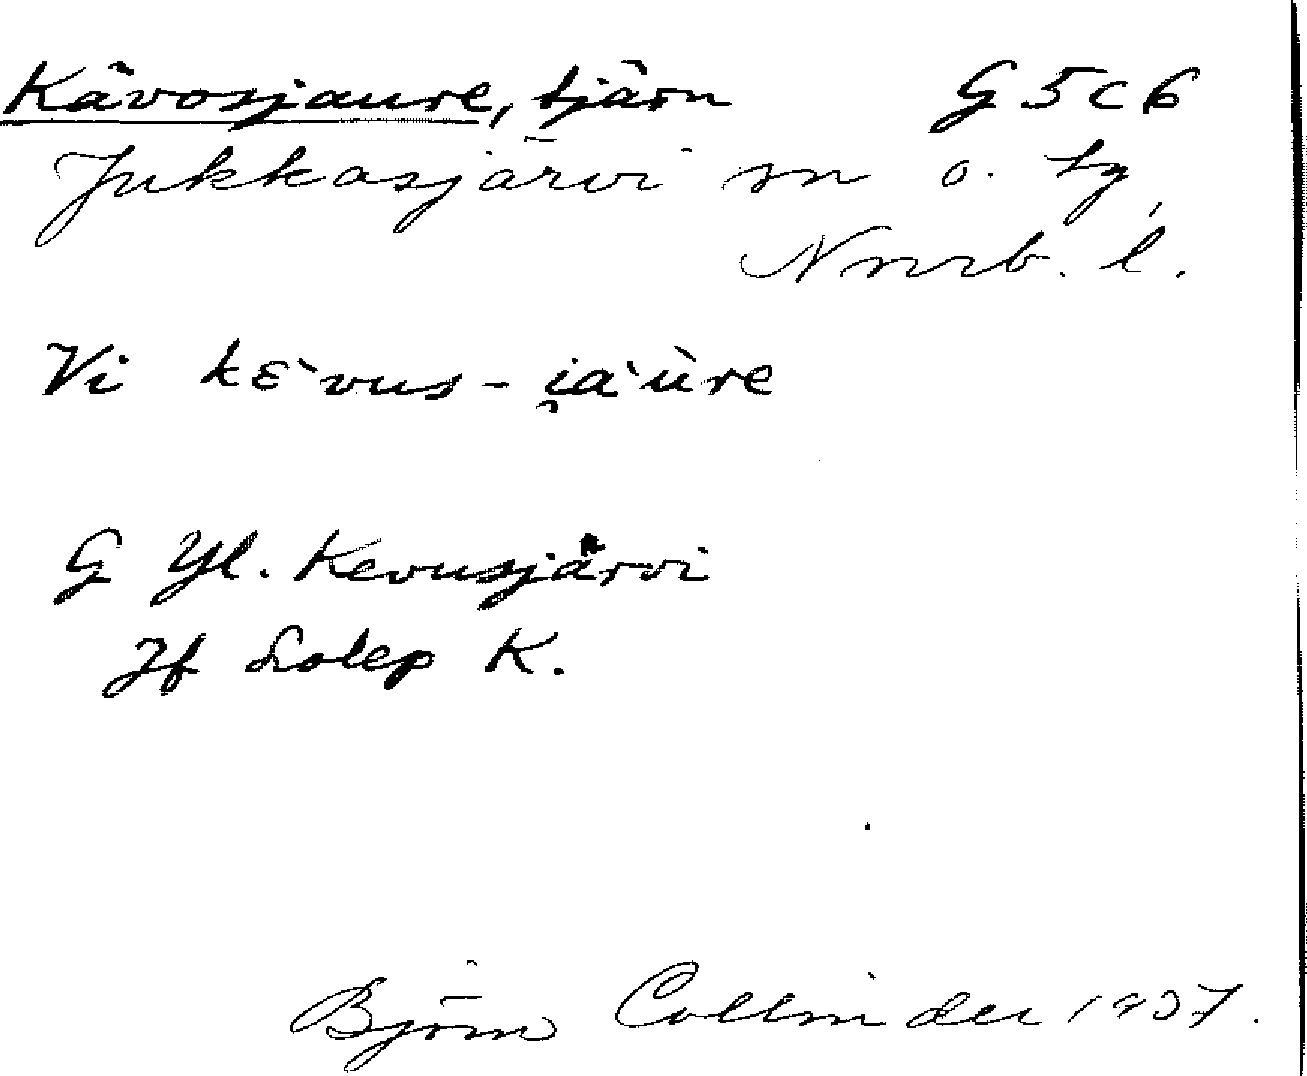 Kåvosjaure, tjärn G 5 c 6
Jukkasjärvi sn o. tg,
Norrb. l.
Vi kɛ̀vus-i̯a`ùre
G Yl. Kevusjärvi
Jf Lolep K.
Björn Collinder 1937.